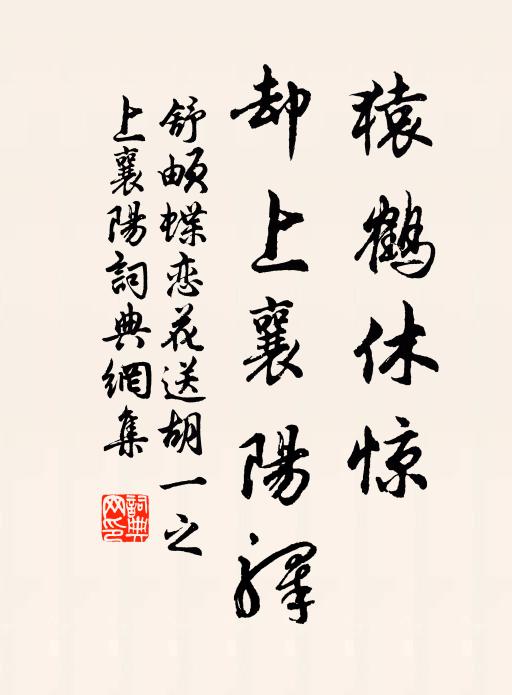 猿鶴休惊
却上襄陽驛
舒頔蝶恋花送胡一之
上襄陽詞典網集
詞典网印